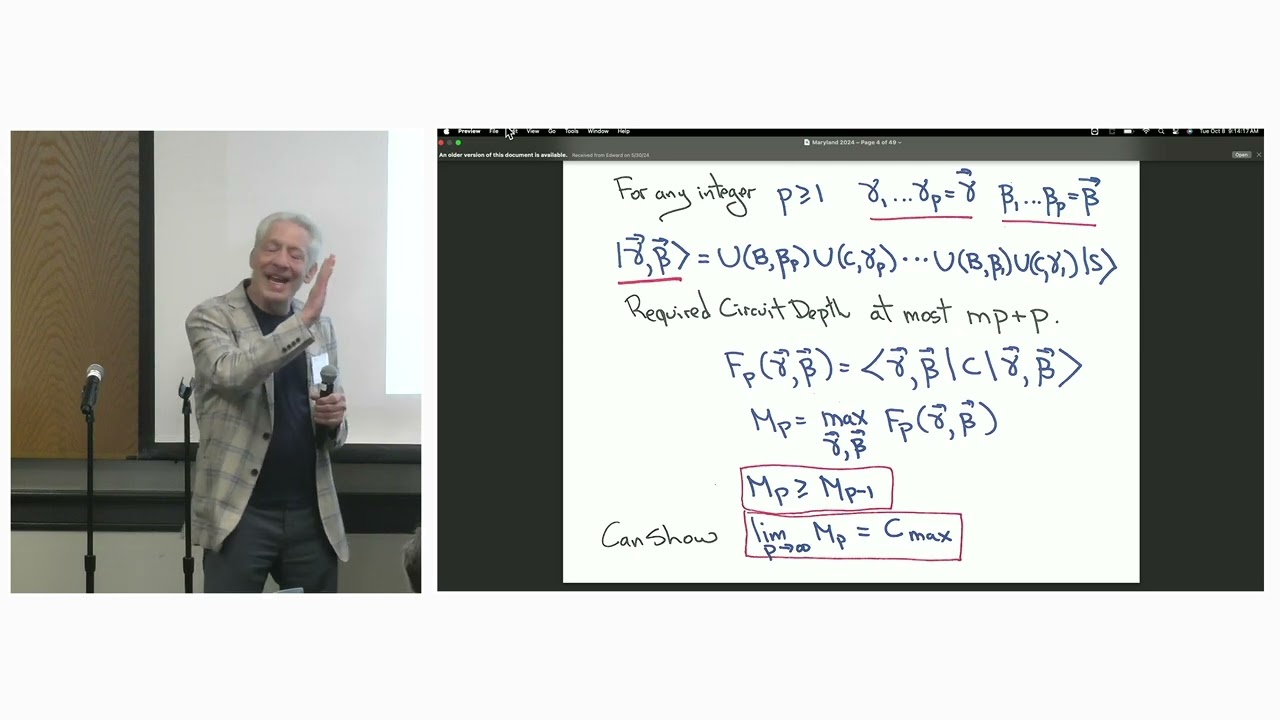 Preview File Edit View Go Tools Window Help Tue Oct 8 9:14:17 AM
Maryland 2024 – Page 4 of 49
An older version of this document is available. Received from Edward on 5/30/24 Open
For any integer p≥1 γ₁...γₚ=γ⃗ β₁...βₚ=β⃗
|γ⃗,β⃗⟩ = U(B,βₚ)U(C,γₚ)···U(B,β₁)U(C,γ₁)|S⟩
Required Circuit Depth at most mp+p.
Fₚ(γ⃗,β⃗)=⟨γ⃗,β⃗|C|γ⃗,β⃗⟩
Mₚ= max Fₚ(γ⃗,β⃗)
γ⃗,β⃗
Mₚ ≥ Mₚ₋₁
Can Show lim Mₚ = Cmax
p→∞